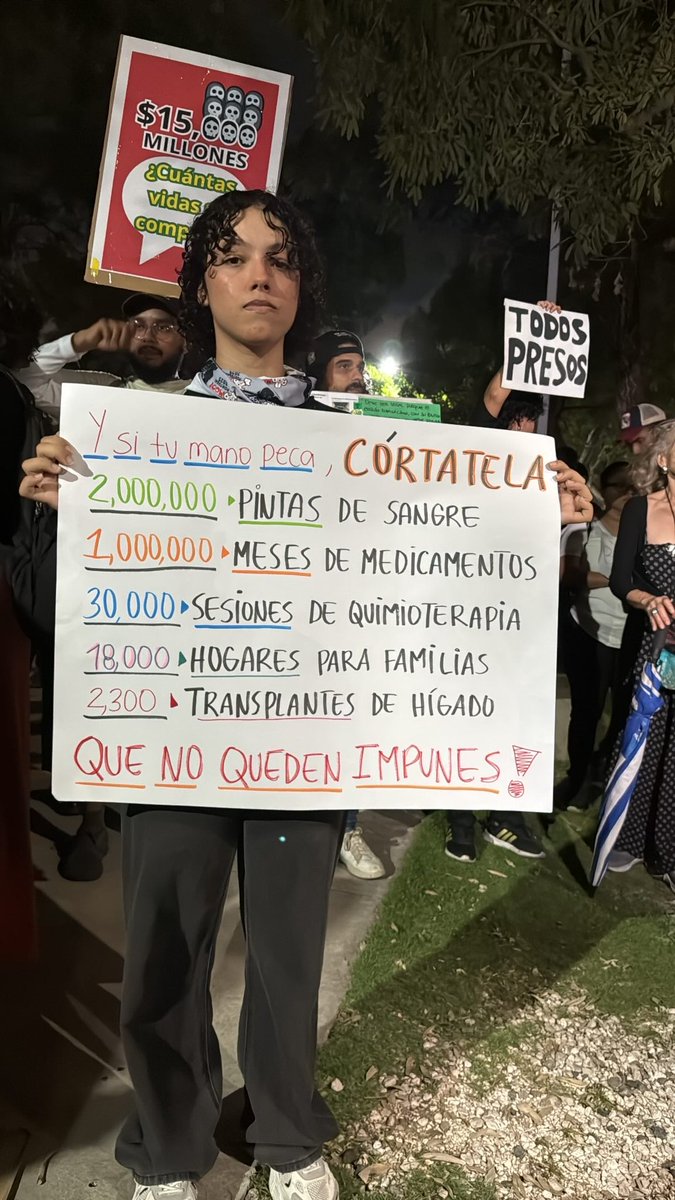 $15,
MILLONES
¿Cuántas
vidas
TODOS
PRESOS
Y si tu mano peca, CÓRTATELA
2,000,000 PINTAS DE SANGRE
1,000,000 MESES DE MEDICAMENTOS
30,000 SESIONES DE QUIMIOTERAPIA
18,000 HOGARES PARA FAMILIAS
2,300 TRANSPLANTES DE HÍGADO
QUE NO QUEDEN IMPUNES!